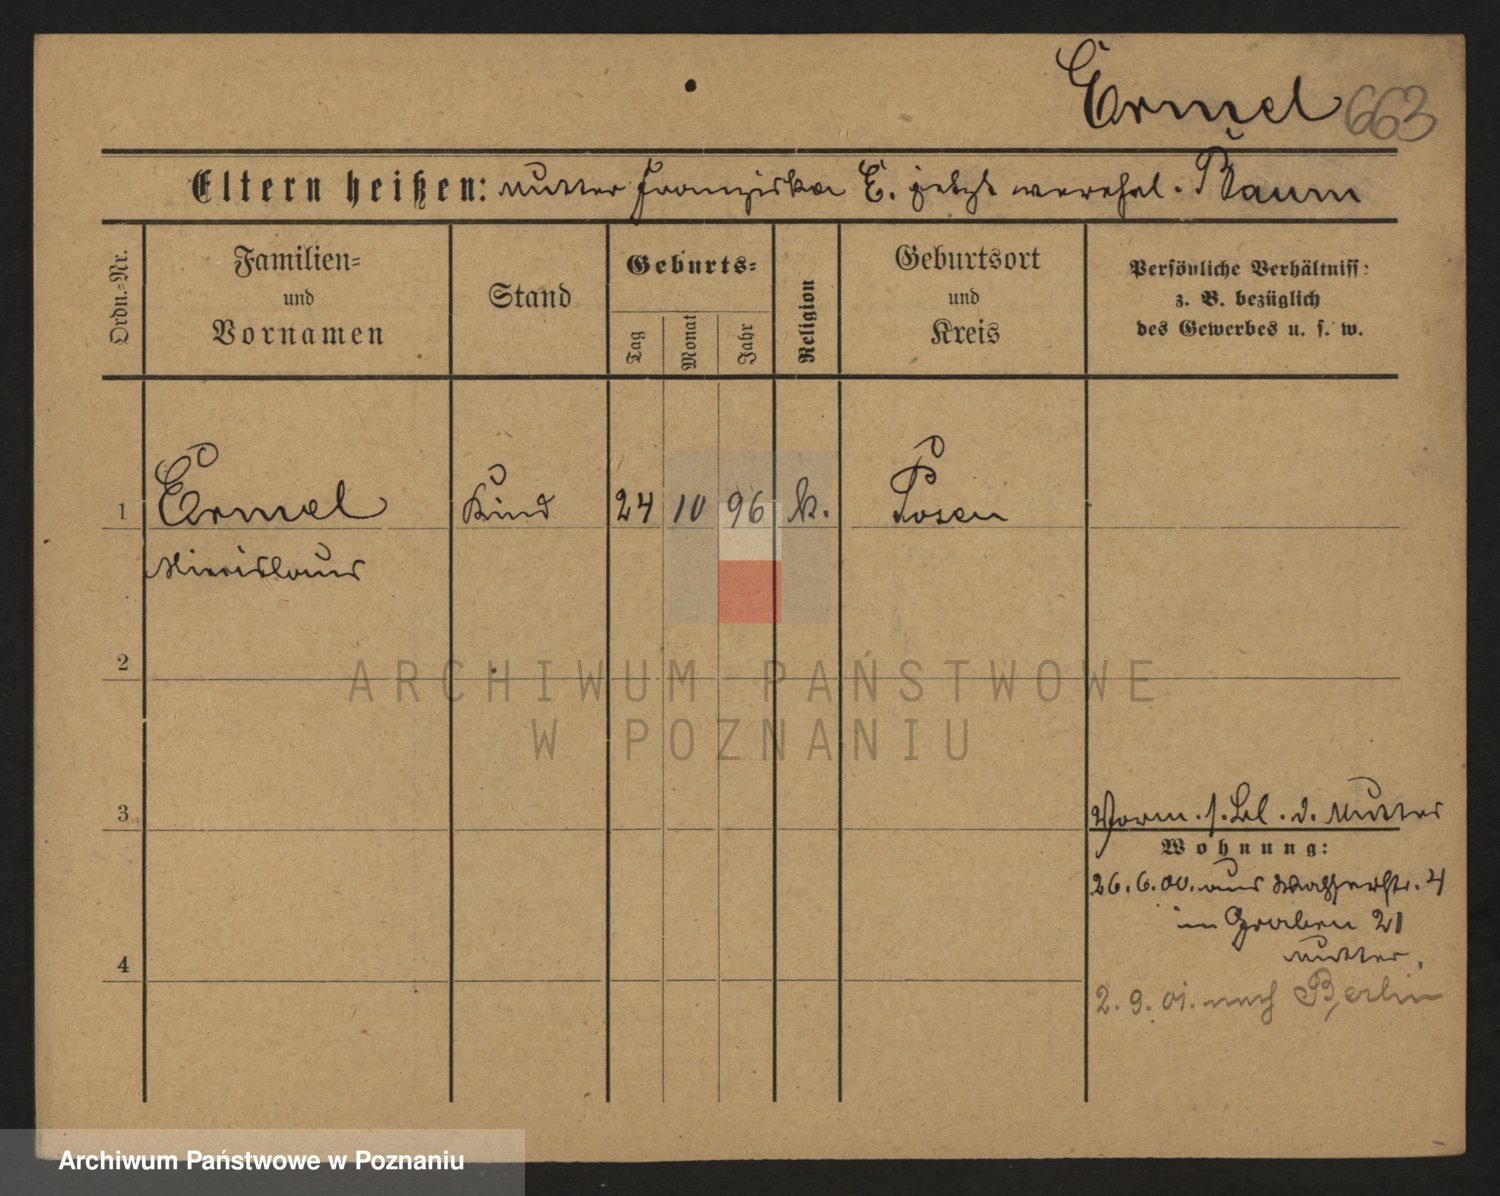 Ermel 663
Eltern heißen: Mutter Franziska E. jetzt verehel. Baum
Ordn.-Nr.
Familien-
und
Vornamen
Stand
Geburts-
Tag
Monat
Jahr
Religion
Geburtsort
und
Kreis
Persönliche Verhältniss:
z. B. bezüglich
des Gewerbes u. s. w.
1 Ermel Kind 24 10 96 k. Posen
2
ARCHIWUM PAŃSTWOWE
W POZNANIU
3 Vorm. s. Bl. d. Mutter
Wohnung:
26.6.00. aus Wasserstr. 4
im Graben 21
4 Mutter.
2.9.01. nach Berlin
Archiwum Państwowe w Poznaniu